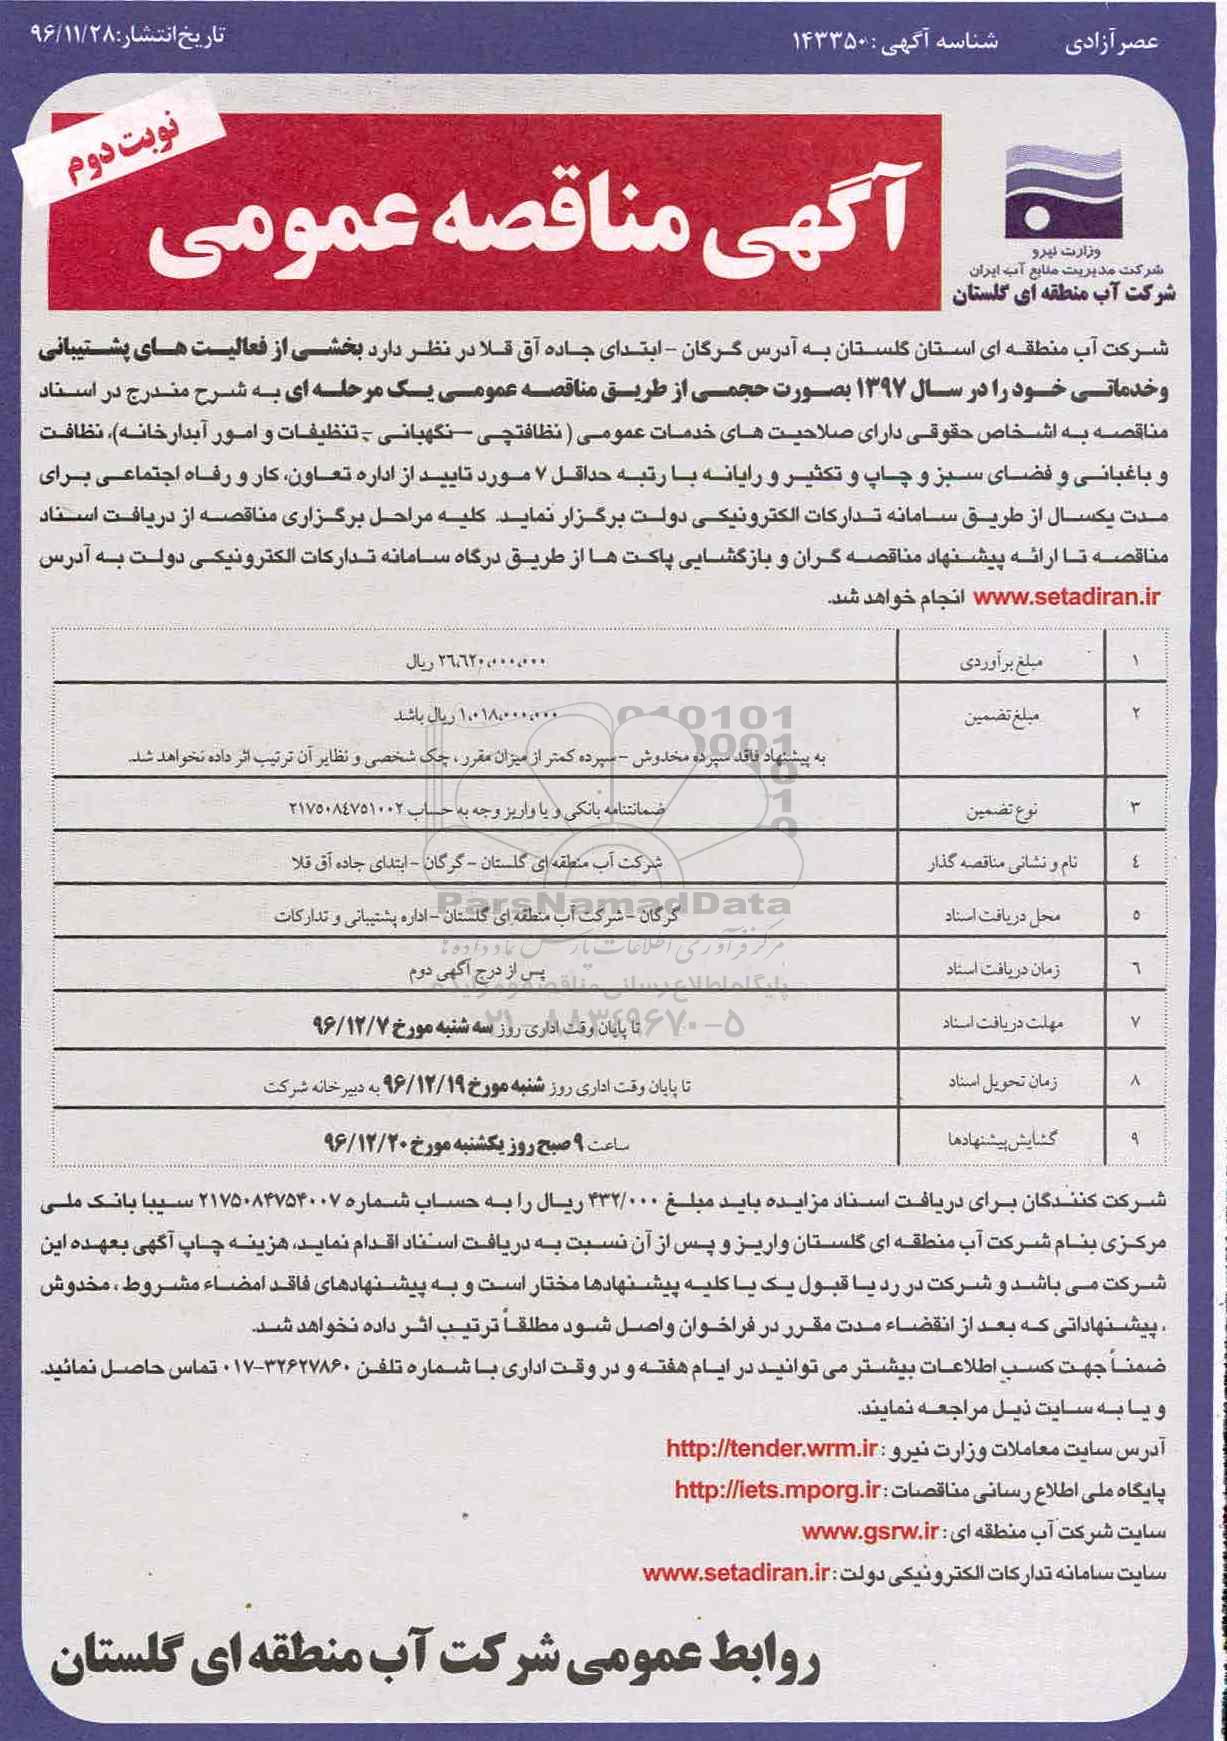 عصر آزادی
شناسه آگهی: ۱۴۳۳۵۰
تاریخ انتشار: ۹۶/۱۱/۲۸
نوبت دوم
آگهی مناقصه عمومی
وزارت نیرو
شرکت مدیریت منابع آب ایران
شرکت آب منطقه ای گلستان
شرکت آب منطقه ای استان گلستان به آدرس گرگان - ابتدای جاده آق قلا در نظر دارد بخشی از فعالیت های پشتیبانی
وخدماتی خود را در سال ۱۳۹۷ بصورت حجمی از طریق مناقصه عمومی یک مرحله ای به شرح مندرج در اسناد
مناقصه به اشخاص حقوقی دارای صلاحیت های خدمات عمومی (نظافتچی -نگهبانی - تنظیفات و امور آبدارخانه)، نظافت
و باغبانی و فضای سبز و چاپ و تکثیر و رایانه با رتبه حداقل ۷ مورد تایید از اداره تعاون، کار و رفاه اجتماعی برای
مدت یکسال از طریق سامانه تدارکات الکترونیکی دولت برگزار نماید. کلیه مراحل برگزاری مناقصه از دریافت اسناد
مناقصه تا ارائه پیشنهاد مناقصه گران و بازگشایی پاکت ها از طریق درگاه سامانه تدارکات الکترونیکی دولت به آدرس
www.setadiran.ir انجام خواهد شد.
۱ مبلغ برآوردی ۲۶،۶۲۰،۰۰۰،۰۰۰ ریال
۲ مبلغ تضمین ۱،۰۱۸،۰۰۰،۰۰۰ ریال باشد
به پیشنهاد فاقد سپرده مخدوش - سپرده کمتر از میزان مقرر، چک شخصی و نظایر آن ترتیب اثر داده نخواهد شد.
۳ نوع تضمین ضمانتنامه بانکی و یا واریز وجه به حساب ۲۱۷۵۰۸۴۷۵۱۰۰۲
۴ نام و نشانی مناقصه گذار شرکت آب منطقه ای گلستان - گرگان - ابتدای جاده آق قلا
۵ محل دریافت اسناد گرگان - شرکت آب منطقه ای گلستان - اداره پشتیبانی و تدارکات
۶ زمان دریافت اسناد پس از درج آگهی دوم
۷ مهلت دریافت اسناد تا پایان وقت اداری روز سه شنبه مورخ ۹۶/۱۲/۷
۸ زمان تحویل اسناد تا پایان وقت اداری روز شنبه مورخ ۹۶/۱۲/۱۹ به دبیرخانه شرکت
۹ گشایش پیشنهادها ساعت ۹ صبح روز یکشنبه مورخ ۹۶/۱۲/۲۰
ParsNamadData
مرکز فرآوری اطلاعات پارس نماد داده ها
پایگاه اطلاع رسانی مناقصه و مزایده
۰۲۱-۸۸۳۴۹۶۷۰-۵
شرکت کنندگان برای دریافت اسناد مزایده باید مبلغ ۴۳۲/۰۰۰ ریال را به حساب شماره ۲۱۷۵۰۸۴۷۵۴۰۰۷ سیبا بانک ملی
مرکزی بنام شرکت آب منطقه ای گلستان واریز و پس از آن نسبت به دریافت اسناد اقدام نماید، هزینه چاپ آگهی بعهده این
شرکت می باشد و شرکت در رد یا قبول یک یا کلیه پیشنهادها مختار است و به پیشنهادهای فاقد امضاء مشروط، مخدوش
، پیشنهاداتی که بعد از انقضاء مدت مقرر در فراخوان واصل شود مطلقاً ترتیب اثر داده نخواهد شد.
ضمناً جهت کسب اطلاعات بیشتر می توانید در ایام هفته و در وقت اداری با شماره تلفن ۳۲۶۲۷۸۶۰-۰۱۷ تماس حاصل نمائید.
و یا به سایت ذیل مراجعه نمایند.
آدرس سایت معاملات وزارت نیرو: http://tender.wrm.ir
پایگاه ملی اطلاع رسانی مناقصات: http://iets.mporg.ir
سایت شرکت آب منطقه ای: www.gsrw.ir
سایت سامانه تدارکات الکترونیکی دولت: www.setadiran.ir
روابط عمومی شرکت آب منطقه ای گلستان